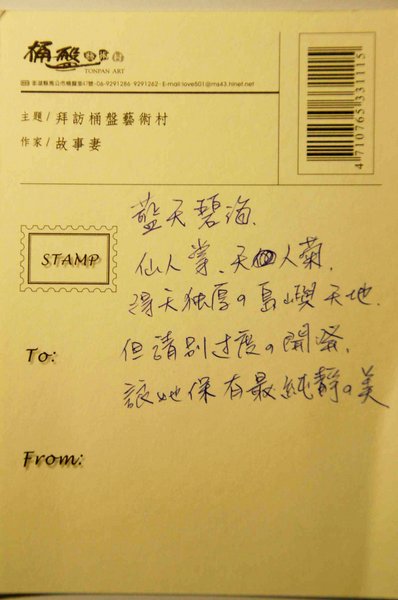 桶盤藝術村
TONPAN ART
澎湖縣馬公市桶盤里47號‧06-9291286‧9291262‧E-mail:love601@ms43.hinet.net
主題/拜訪桶盤藝術村
作家/故事妻
4710765331115
藍天碧海、
仙人掌、天人菊、
得天独厚の島嶼天地、
但請别过度の開發、
讓她保有最純靜の美
STAMP
To:
From: